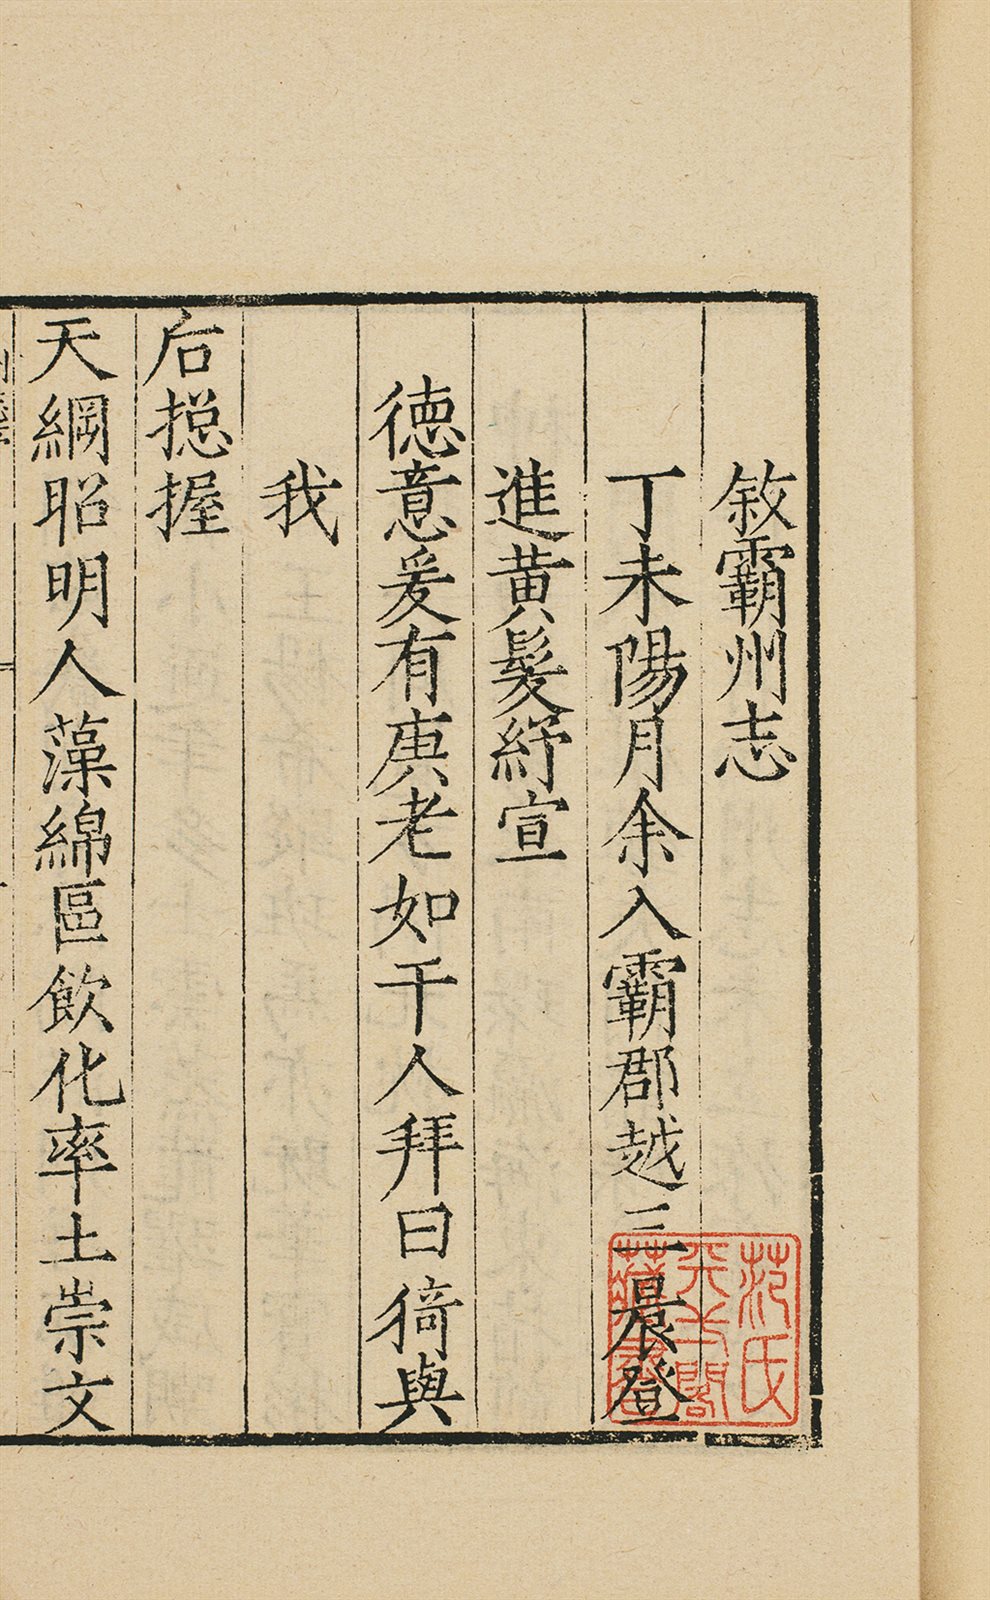 敘霸州志
丁未陽月余入霸郡越三晨登
進黄髮紓宣
德意爰有庚老如干人拜曰猗與
我
后揔握
天綱昭明人藻綿區飲化率土崇文
范氏
天一閣
藏書